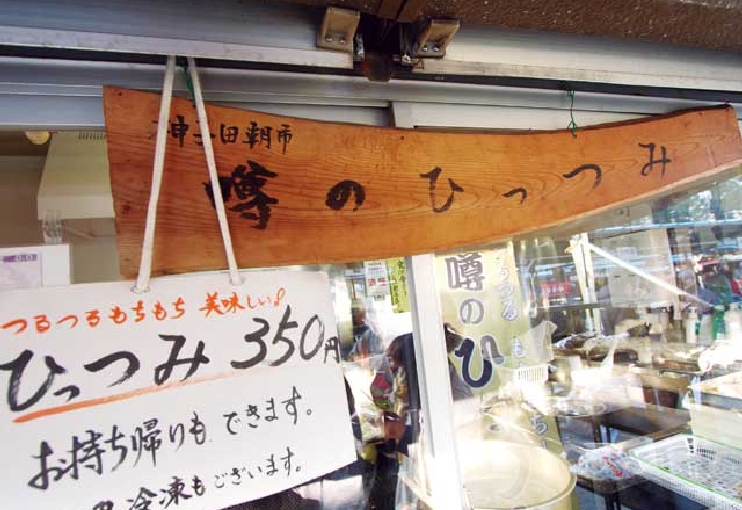 神子田朝市
噂のひっつみ
つるつるもちもち 美味しい!
ひっつみ 350円
お持ち帰りも できます。
冷凍もございます。
噂のひ